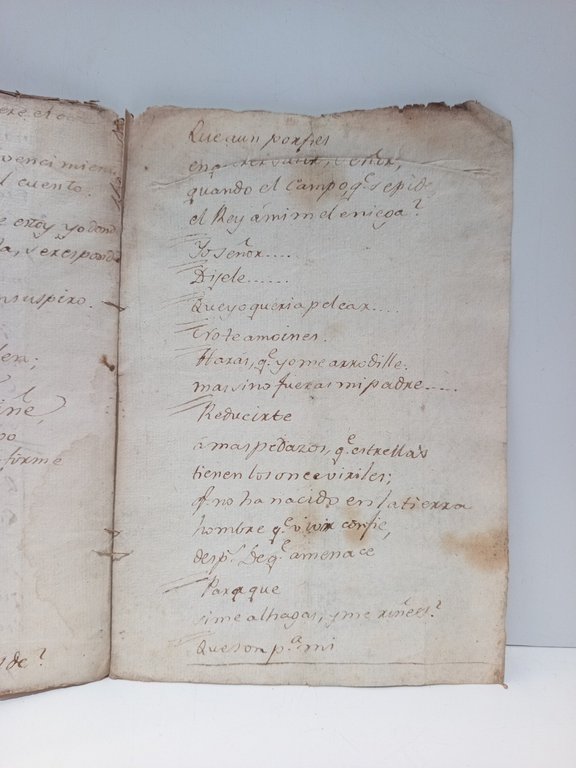 ere, el
vencimien
l cuento.
e estoy yo dond
da, y responde
n suspiro.
ine,
po
forme
Que aun porfies
venir,
quando el campo, q.e se pide
el Rey á mi m el eniega?
Yo señor.....
Dijele.......
Que yo queria pelear....
No te amoines.
Haras, q.e yo me arrodille.
mas sino fueras mi padre.....
Reducirte
á mas pedazos, q.e estrellas
tienen los once viriles;
q no ha nacido en la tierra
hombre q.e vivir confie,
desp.s de q.e amenace
Para que
si me alhagas, y me riñees?
Que son p.a mi